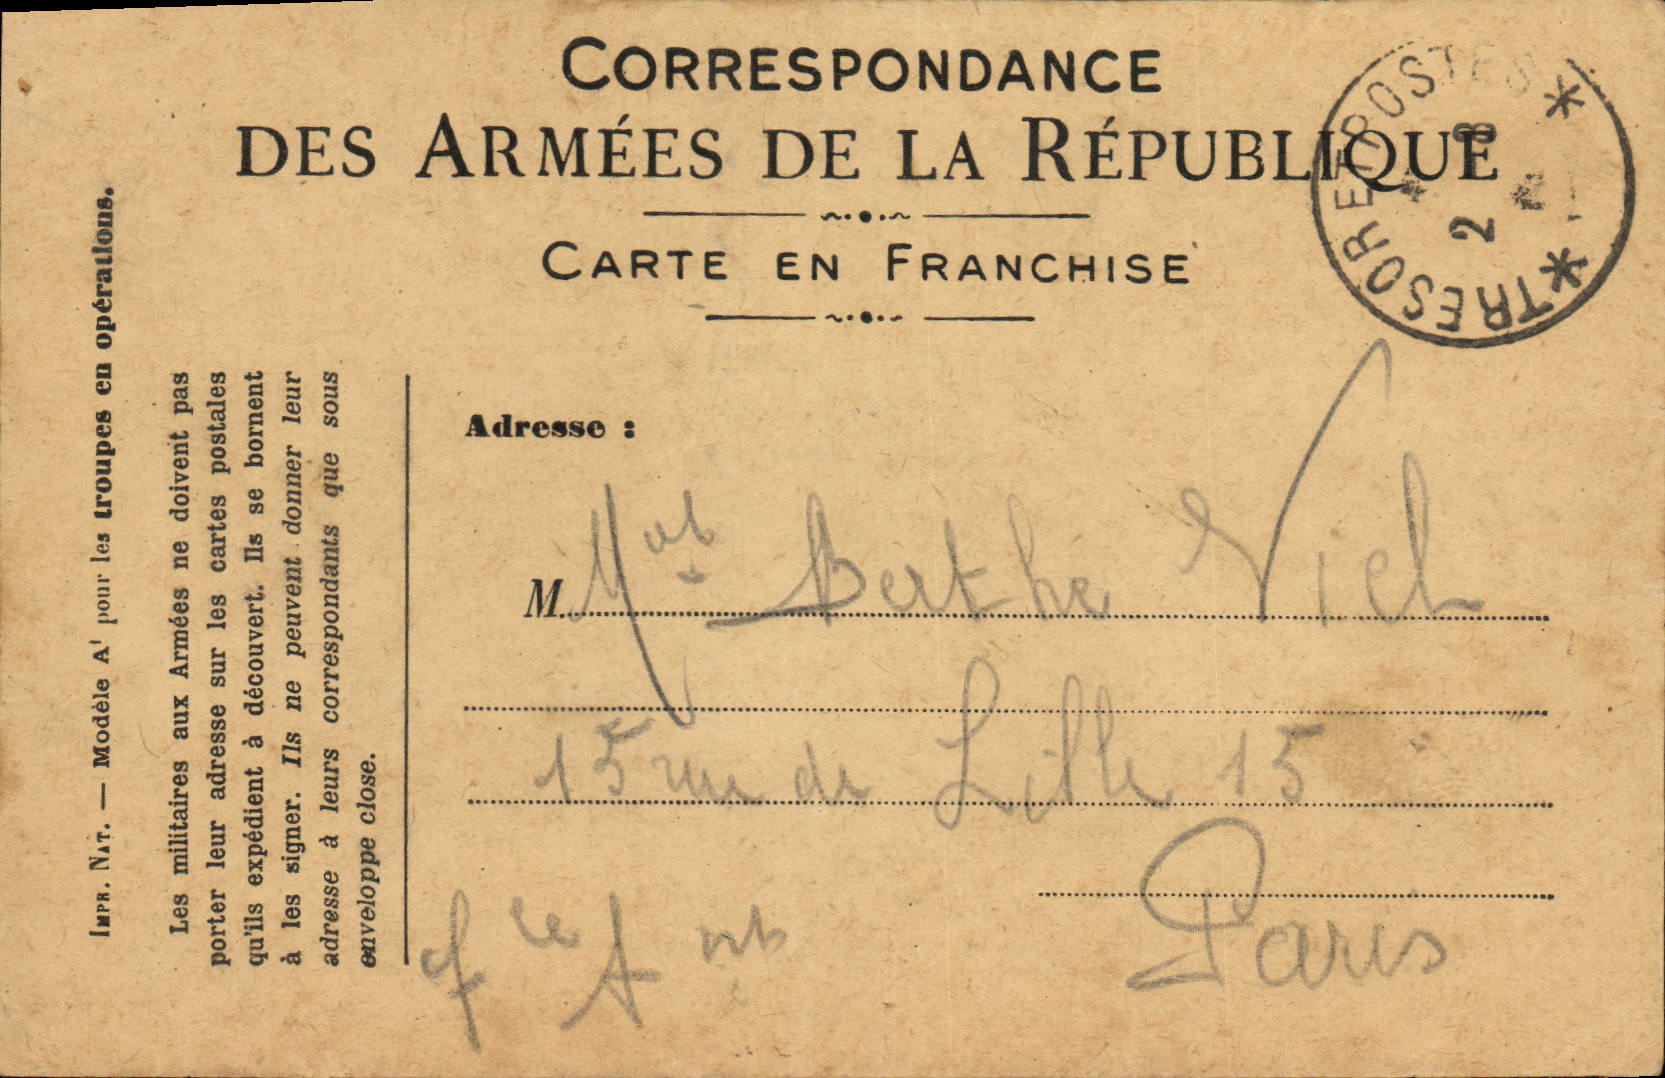 CORRESPONDANCE
DES ARMÉES DE LA RÉPUBLIQUE
CARTE EN FRANCHISE
* TRESOR ET POSTES *
2
IMPR. NAT. — Modèle A' pour les troupes en opérations.
Les militaires aux Armées ne doivent pas
porter leur adresse sur les cartes postales
qu'ils expédient à découvert. Ils se bornent
à les signer. Ils ne peuvent donner leur
adresse à leurs correspondants que sous
enveloppe close.
Adresse :
M. Berthe Viel
15 rue de Lille 15
Paris